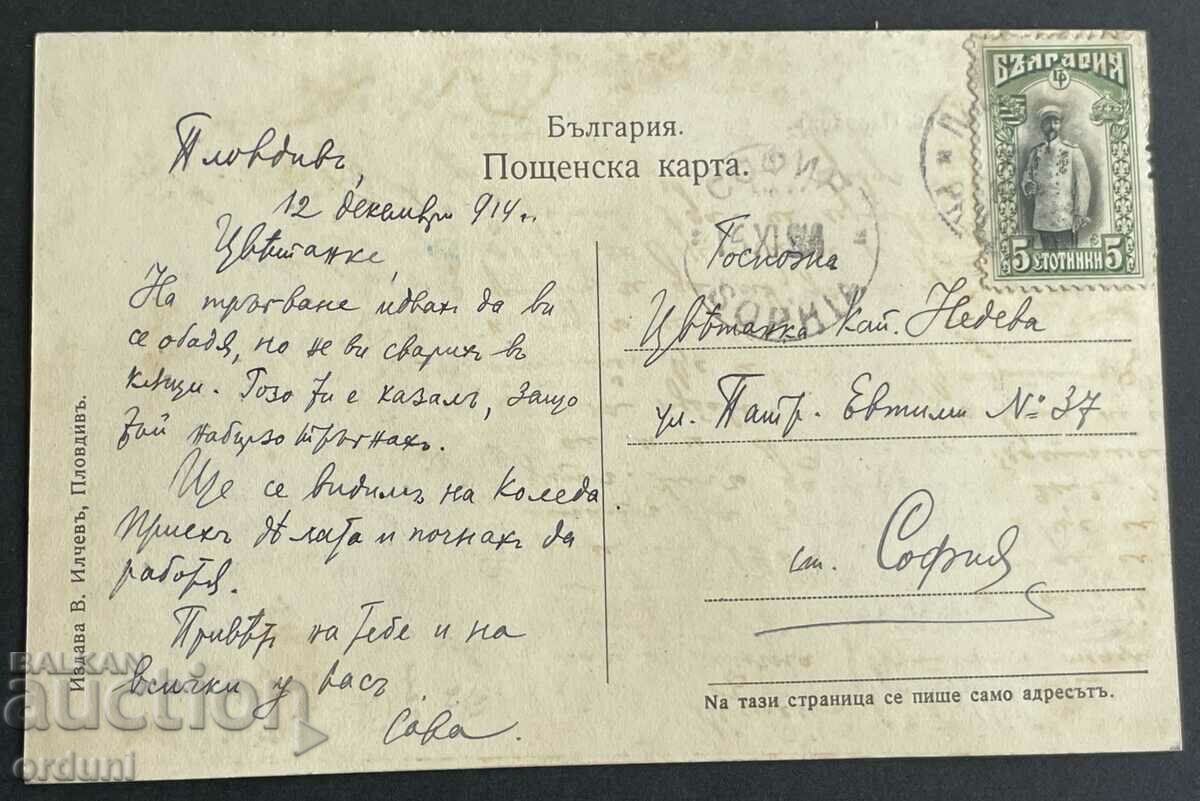 България.
Пощенска карта.
Пловдивъ,
12 декемврий 914 г.
Цвѣтанке,
На тръгване идвахъ да ви
се обадя, но не ви сварихъ въ
кѫщи. Гозо ти е казалъ, защо
тъй набързо тръгнахъ.
Ще се видимъ на Коледа
Приехъ дѣлата и почнахъ да
работя.
Привѣтъ на тебе и на
всички у васъ.
Сава.
Госпожа
Цвѣтанка Кап. Недева
ул. Патр. Евтимий № 37
гр. София
На тази страница се пише само адресътъ.
Издава В. Илчевъ, Пловдивъ.
БЪЛГАРИЯ
5 СТОТИНКИ 5
СОФИЯ
XI
BALKAN
auction
orduni